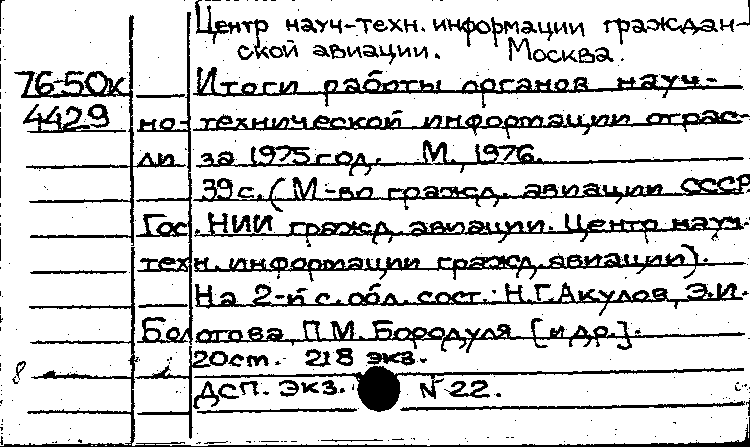 Центр науч-техн. информации граждан-
ской авиации. Москва.
76-50к Итоги работы органов науч.-
4429 но-технической информации отрас-
ли за 1975 год. М., 1976.
39 с. (М-во гражд. авиации СССР
Гос. НИИ гражд. авиации. Центр науч.
техн. информации гражд. авиации).
На 2-й с. обл. сост.: Н.Г. Акулов, Э.И.
Болотова, П.М. Бородуля [и др.].
20 ст. 218 экз.
8
ДСП. Экз. № 22.